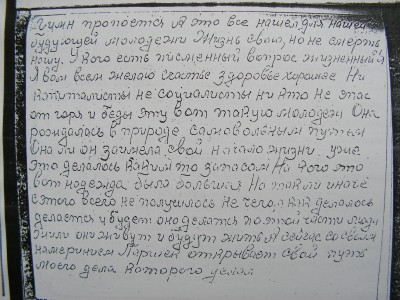 Гимн пропоется А это все нашей для нашей
будующей молодежи Жизнь свою, но не смерть
нашу. У кого есть писменный вопрос жизненный
Я вам всем желаю счастье здоровье хорошее Ни
капиталисты не социалисты ни кто не спас
от горя и беды эту вот такую молодежь Она
рождалась в природе, самовольным путьем
Она ли он заимела свой начало жизни. уже
это делалось каким то запасом На кого это
вот надежда была большая На такли иначе
с этого всего не получилось Не чего как делалось
делается и будет оно делатся по этой части люди
жили они живут и будут жить А сейчас со своим
намерением Паршек открывает свой путь
моего дела которого делал